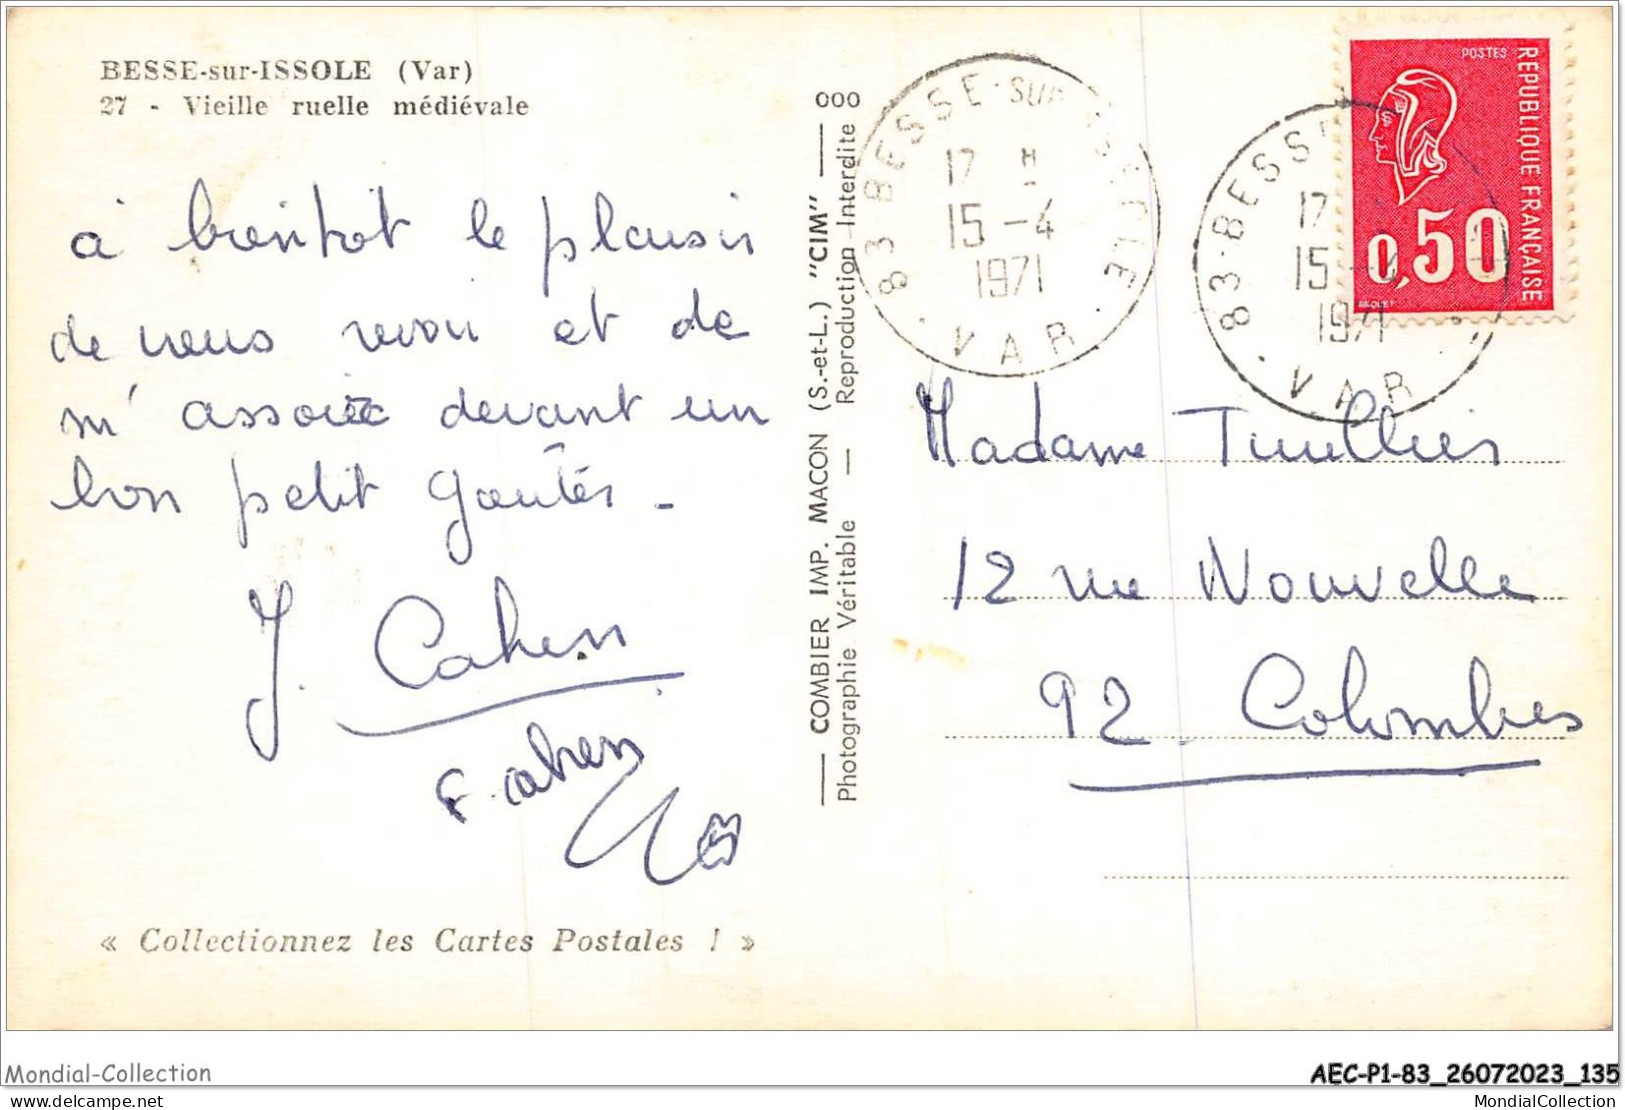 BESSE-sur-ISSOLE (Var)
27 - Vieille ruelle médiévale
à bientôt le plaisir
de vous revoir et de
m'associer devant un
bon petit goûter -
J. Cahen
F. Cahen
« Collectionnez les Cartes Postales ! »
COMBIER IMP. MACON (S.-et-L.) "CIM"
Photographie Véritable — Reproduction Interdite
000
83 - BESSE-SUR-ISSOLE
17 H
15 - 4
1971
VAR
83 - BESSE
17
15 - 4
1971
VAR
POSTES
REPUBLIQUE FRANÇAISE
0,50
BEQUET
Madame
12 rue Nouvelle
92 - Colombes
Mondial-Collection
AEC-P1-83_26072023_135
delcampe.net
MondialCollection